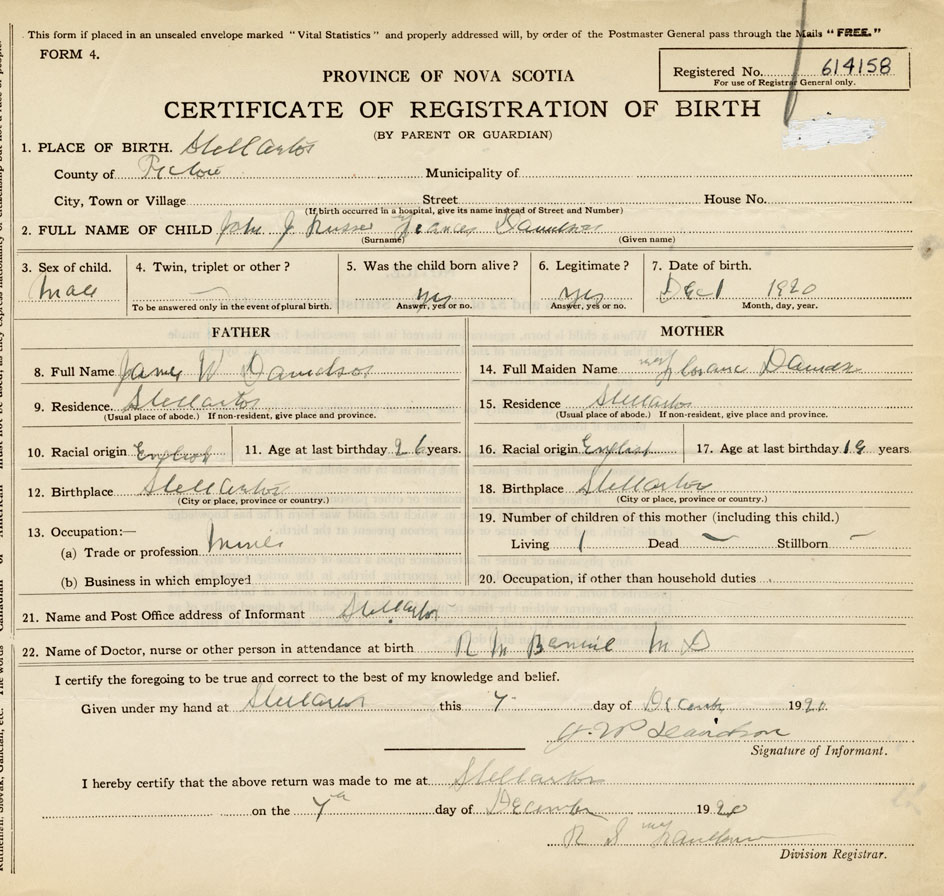 This form if placed in an unsealed envelope marked "Vital Statistics" and properly addressed will, by order of the Postmaster General pass through the Mails "FREE."
FORM 4.
Registered No. 614158
For use of Registrar General only.
PROVINCE OF NOVA SCOTIA
CERTIFICATE OF REGISTRATION OF BIRTH
(BY PARENT OR GUARDIAN)
1. PLACE OF BIRTH. Stellarton
County of Pictou Municipality of
City, Town or Village Street House No.
(If birth occurred in a hospital, give its name instead of Street and Number)
2. FULL NAME OF CHILD John J Francis Davidson
(Surname) (Given name)
3. Sex of child. 4. Twin, triplet or other? 5. Was the child born alive? 6. Legitimate? 7. Date of birth.
Male yes yes Dec 1 1920
To be answered only in the event of plural birth. Answer, yes or no. Answer, yes or no. Month, day, year.
FATHER
8. Full Name James W Davidson
9. Residence. Stellarton
(Usual place of abode.) If non-resident, give place and province.
10. Racial origin English 11. Age at last birthday 26 years.
12. Birthplace Stellarton
(City or place, province or country.)
13. Occupation:—
(a) Trade or profession Miner
(b) Business in which employed
MOTHER
14. Full Maiden Name
15. Residence Stellarton
(Usual place of abode.) If non-resident, give place and province.
16. Racial origin English 17. Age at last birthday 19 years
18. Birthplace Stellarton
(City or place, province or country.)
19. Number of children of this mother (including this child.)
Living 1 Dead – Stillborn –
20. Occupation, if other than household duties
21. Name and Post Office address of Informant Stellarton
22. Name of Doctor, nurse or other person in attendance at birth R M M D
I certify the foregoing to be true and correct to the best of my knowledge and belief.
Given under my hand at Stellarton this 7 day of Decemb 1920.
J. W. Davidson
Signature of Informant.
I hereby certify that the above return was made to me at Stellarton
on the 7th day of December 1920
R S
Division Registrar.